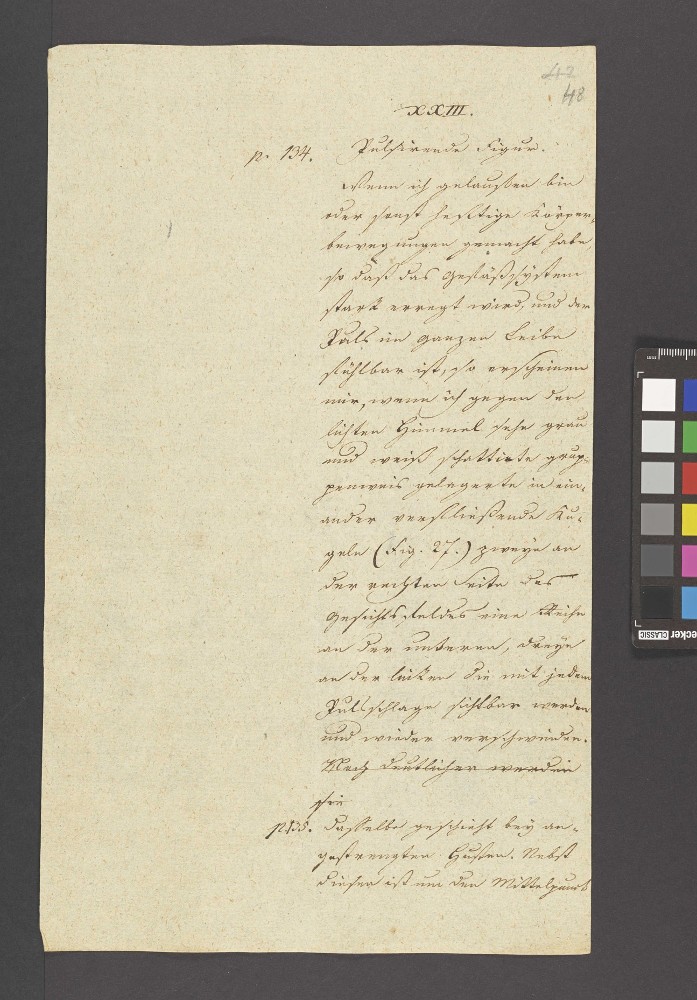 42
48
XXIII.
p. 134. Pulsirende Figur.
Wenn ich gelaufen bin
oder sonst heftige Körper-
bewegungen gemacht habe,
so daß das Gefäßsystem
stark erregt wird, und der
Puls im ganzen Leibe
fühlbar ist, so erscheinen
mir, wenn ich gegen den
lichten Himmel sehe grau
und weiß schattirte grup-
penweis gelagerte in ein-
ander verfließende Ku-
geln (Fig. 27.) zweye an
der rechten Seite des
Gesichtsfeldes eine Reihe
an der unteren, dreye
an der linken die mit jedem
Pulsschlage sichtbar werden
und wieder verschwinden.
Noch deutlicher werden
sie
p. 135. Dasselbe geschieht bey an-
gestrengten Husten. Nebst
diesen ist um den Mittelpunkt
mm
CLASSIC